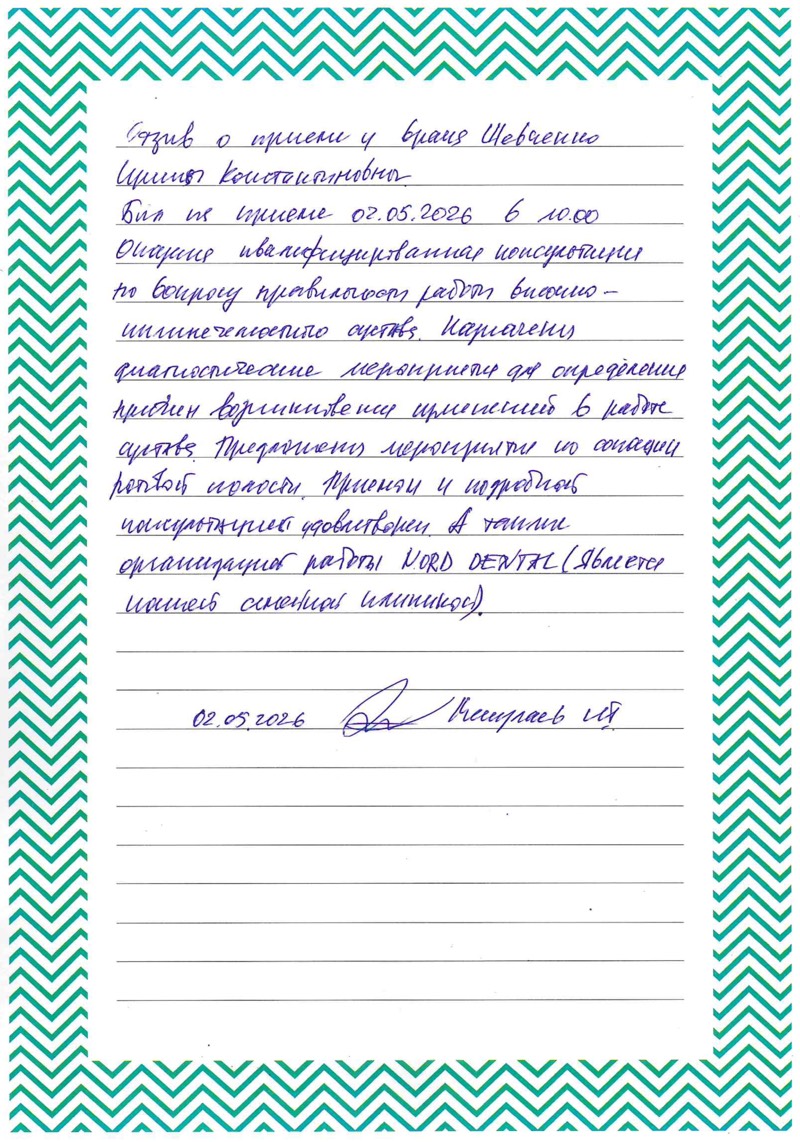 Отзыв о приеме у врача Шевченко
Ирины Константиновны.
Был на приеме 02.05.2026 в 10.00
Оказана квалифицированная консультация
по вопросу правильности работы височно-
нижнечелюстного сустава. Назначены
диагностические мероприятия для определения
причин возникновения изменений в работе
сустава. Предложены мероприятия по санации
ротовой полости. Приемом и подробной
консультацией удовлетворен. А также
организацией работы NORD DENTAL (Является
нашей семейной клиникой).
02.05.2026